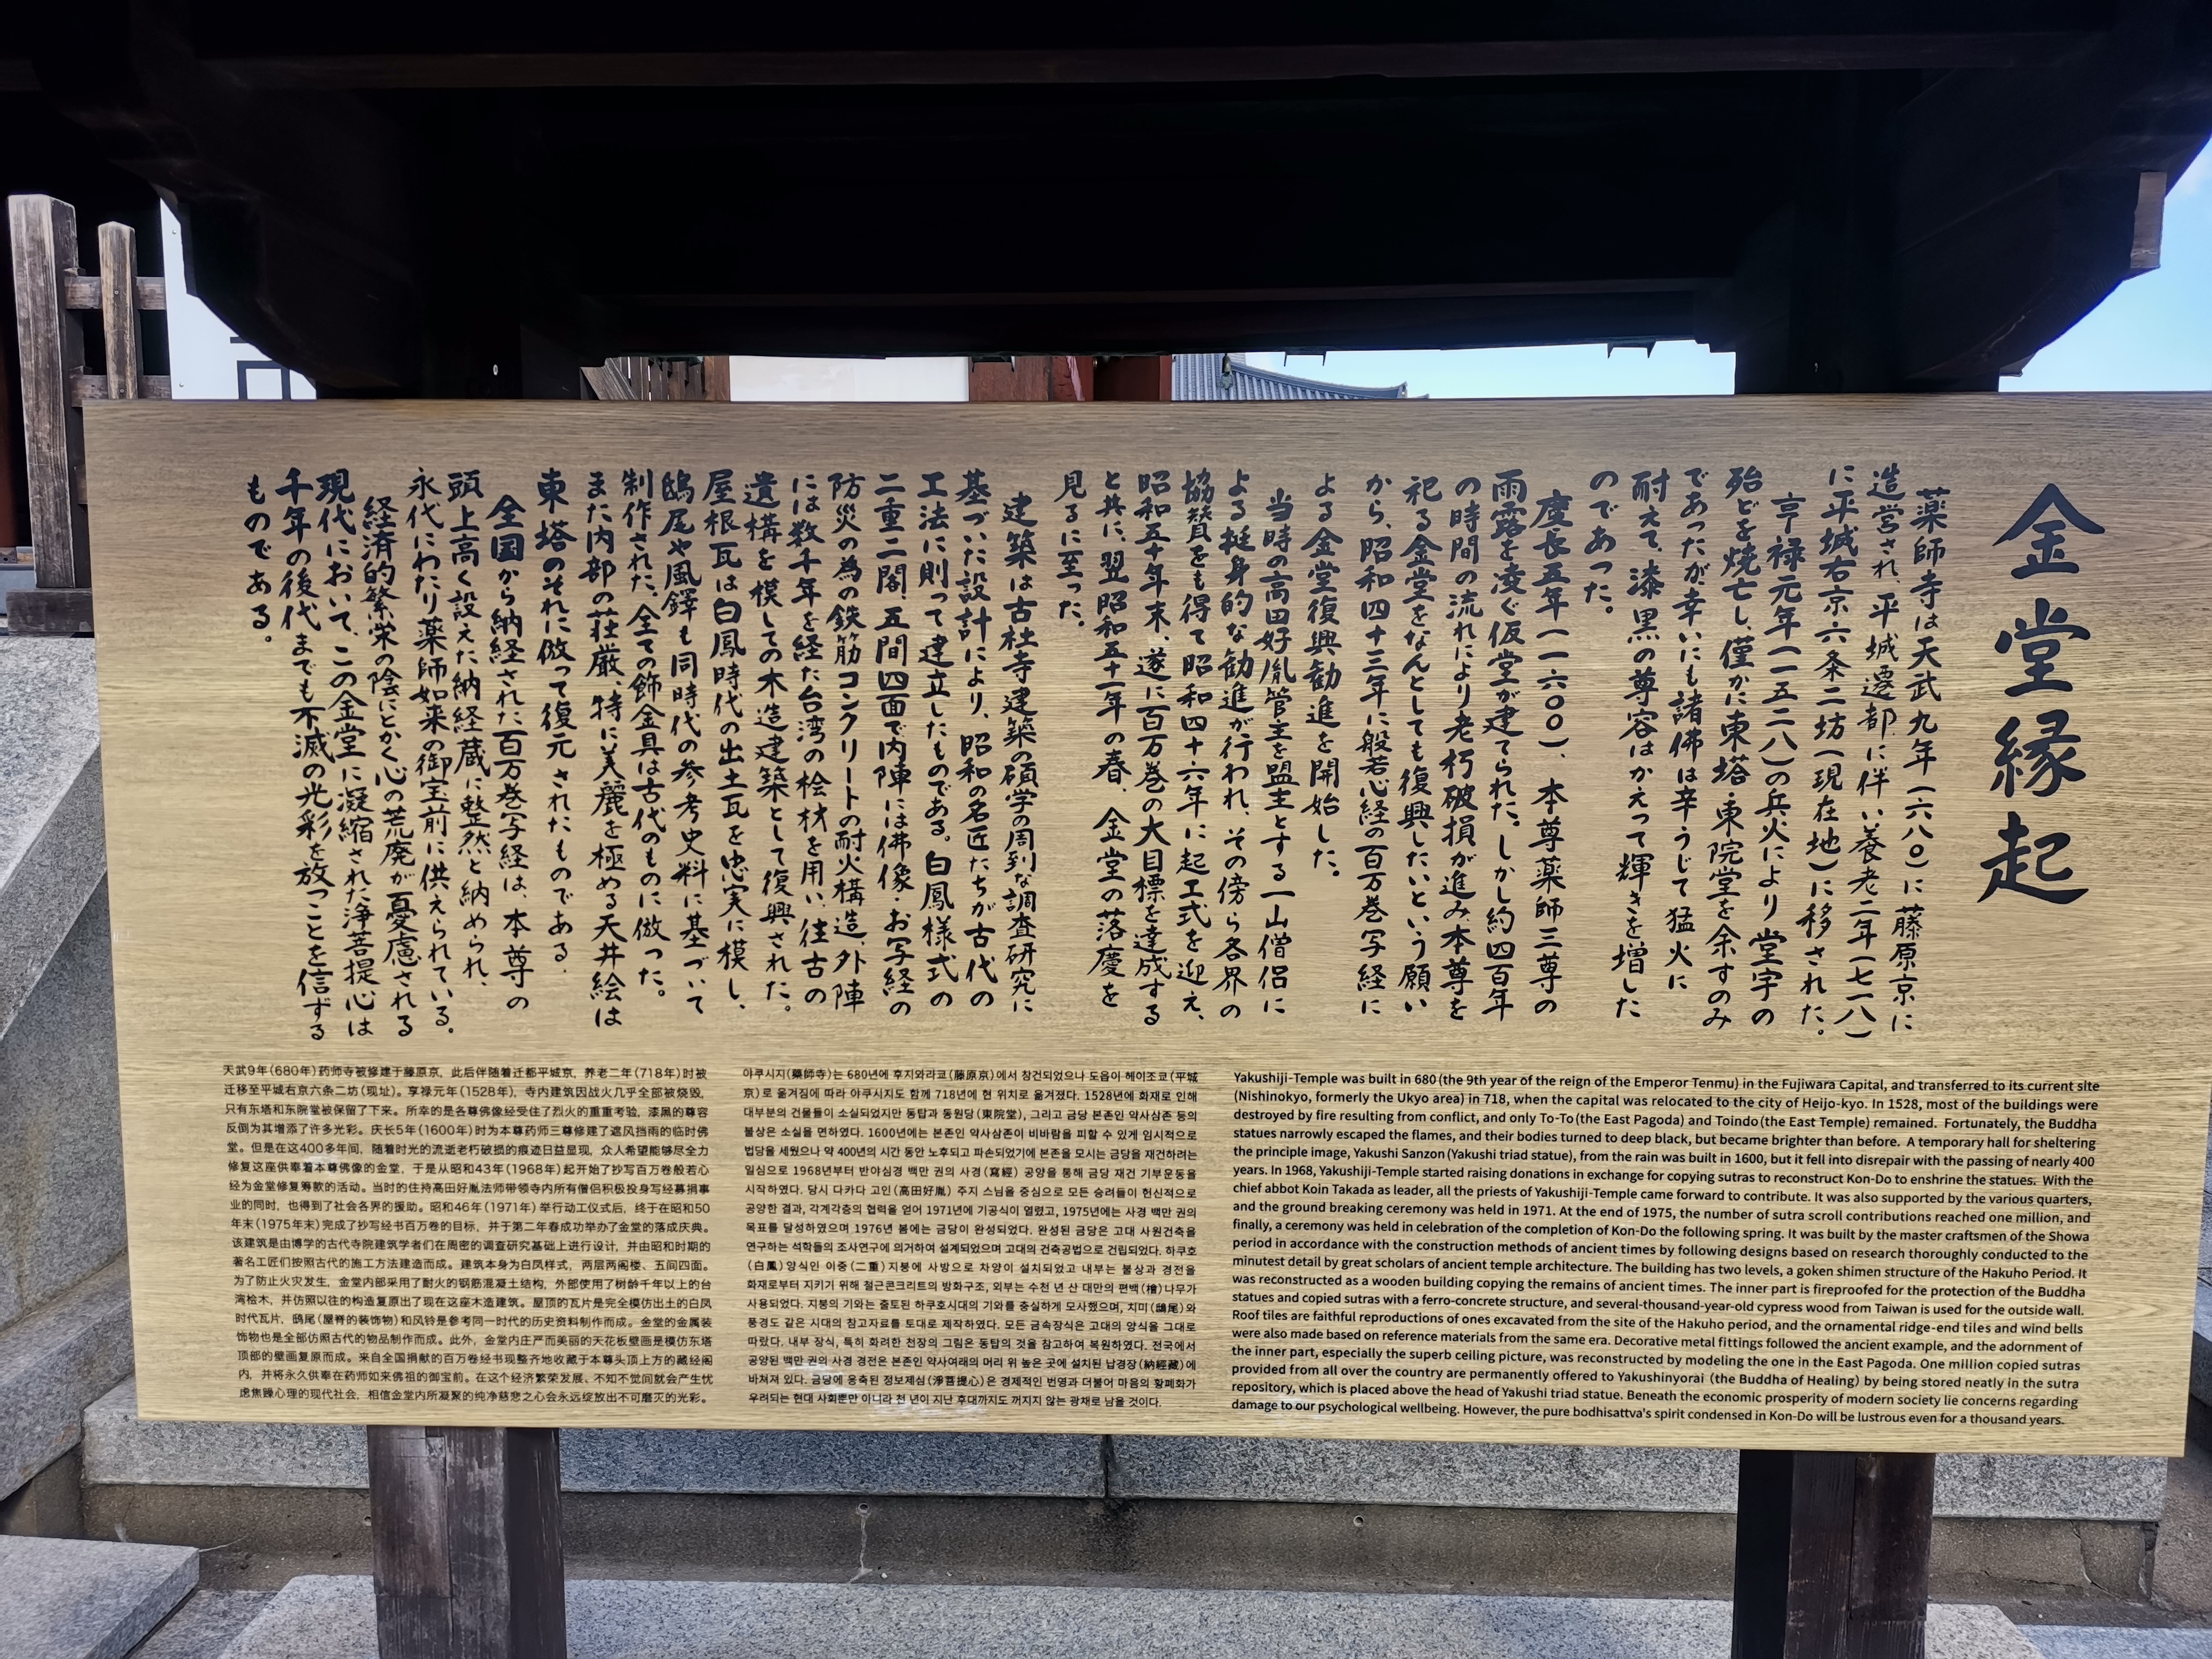 金堂縁起
薬師寺は天武九年(六八〇)に藤原京に
造営され、平城遷都に伴い養老二年(七一八)
に平城右京六条二坊(現在地)に移された。
享禄元年(一五二八)の兵火により堂宇の
殆どを焼亡し、僅かに東塔・東院堂を余すのみ
であったが、幸いにも諸佛は辛うじて猛火に
耐えて、漆黒の尊容はかえって輝きを増した
のであった。
慶長五年(一六〇〇)、本尊薬師三尊の
雨露を凌ぐ仮堂が建てられた。しかし約四百年
の時間の流れにより老朽破損が進み、本尊を
祀る金堂をなんとしても復興したいという願い
から、昭和四十三年に般若心経の百万巻写経に
よる金堂復興勧進を開始した。
当時の高田好胤管主を盟主とする一山僧侶に
よる挺身的な勧進が行われ、その傍ら各界の
協賛をも得て昭和四十六年に起工式を迎え、
昭和五十年末、遂に百万巻の大目標を達成する
と共に、翌昭和五十一年の春、金堂の落慶を
見るに至った。
建築は古社寺建築の碩学の周到な調査研究に
基づいた設計により、昭和の名匠たちが古代の
工法に則って建立したものである。白鳳様式の
二重二閣、五間四面で内陣には佛像・お写経の
防災の為の鉄筋コンクリートの耐火構造、外陣
には数千年を経た台湾の桧材を用い、往古の
遺構を模しての木造建築として復興された。
屋根瓦は白鳳時代の出土瓦を忠実に模し、
鴟尾や風鐸も同時代の参考史料に基づいて
制作された。全ての飾金具は古代のものに倣った。
また内部の荘厳、特に美麗を極める天井絵は
東塔のそれに倣って復元されたものである。
全国から納経された百万巻写経は、本尊の
頭上高く設えた納経蔵に整然と納められ、
永代にわたり薬師如来の御宝前に供えられている。
経済的繁栄の陰にとかく心の荒廃が憂慮される
現代において、この金堂に凝縮された浄菩提心は
千年の後代までも不滅の光彩を放つことを信ずる
ものである。
天武9年(680年)药师寺被修建于藤原京，此后伴随着迁都平城京，养老二年(718年)时被
迁移至平城右京六条二坊(现址)。享禄元年(1528年)，寺内建筑因战火几乎全部被烧毁，
只有东塔和东院堂被保留了下来。所幸的是各尊佛像经受住了烈火的重重考验，漆黑的尊容
反倒为其增添了许多光彩。庆长5年(1600年)时为本尊药师三尊修建了遮风挡雨的临时佛
堂。但是在这400多年间，随着时光的流逝老朽破损的痕迹日益显现，众人希望能够尽全力
修复这座供奉着本尊佛像的金堂，于是从昭和43年(1968年)起开始了抄写百万卷般若心
经为金堂修复筹款的活动。当时的住持高田好胤法师带领寺内所有僧侣积极投身写经募捐事
业的同时，也得到了社会各界的援助。昭和46年(1971年)举行动工仪式后，终于在昭和50
年末(1975年末)完成了抄写经书百万卷的目标，并于第二年春成功举办了金堂的落成庆典。
该建筑是由博学的古代寺院建筑学者们在周密的调查研究基础上进行设计，并由昭和时期的
著名工匠们按照古代的施工方法建造而成。建筑本身为白凤样式，两层两阁楼、五间四面。
为了防止火灾发生，金堂内部采用了耐火的钢筋混凝土结构，外部使用了树龄千年以上的台
湾桧木，并仿照以往的构造复原出了现在这座木造建筑。屋顶的瓦片是完全模仿出土的白凤
时代瓦片，鸱尾(屋脊的装饰物)和风铃是参考同一时代的历史资料制作而成。金堂的金属装
饰物也是全部仿照古代的物品制作而成。此外，金堂内庄严而美丽的天花板壁画是模仿东塔
顶部的壁画复原而成。来自全国捐献的百万卷经书现整齐地收藏于本尊头顶上方的藏经阁
内，并将永久供奉在药师如来佛祖的御宝前。在这个经济繁荣发展、不知不觉间就会产生忧
虑焦躁心理的现代社会，相信金堂内所凝聚的纯净慈悲之心会永远绽放出不可磨灭的光彩。
야쿠시지(藥師寺)는 680년에 후지와라쿄(藤原京)에서 창건되었으나 도읍이 헤이조쿄(平城
京)로 옮겨짐에 따라 야쿠시지도 함께 718년에 현 위치로 옮겨졌다. 1528년에 화재로 인해
대부분의 건물들이 소실되었지만 동탑과 동원당(東院堂), 그리고 금당 본존인 약사삼존 등의
불상은 소실을 면하였다. 1600년에는 본존인 약사삼존이 비바람을 피할 수 있게 임시적으로
법당을 세웠으나 약 400년의 시간 동안 노후되고 파손되었기에 본존을 모시는 금당을 재건하려는
일심으로 1968년부터 반야심경 백만 권의 사경(寫經) 공양을 통해 금당 재건 기부운동을
시작하였다. 당시 다카다 고인(高田好胤) 주지 스님을 중심으로 모든 승려들이 헌신적으로
공양한 결과, 각계각층의 협력을 얻어 1971년에 기공식이 열렸고, 1975년에는 사경 백만 권의
목표를 달성하였으며 1976년 봄에는 금당이 완성되었다. 완성된 금당은 고대 사원건축을
연구하는 석학들의 조사연구에 의거하여 설계되었으며 고대의 건축공법으로 건립되었다. 하쿠호
(白鳳)양식인 이중(二重)지붕에 사방으로 차양이 설치되었고 내부는 불상과 경전을
화재로부터 지키기 위해 철근콘크리트의 방화구조, 외부는 수천 년 산 대만의 편백(檜)나무가
사용되었다. 지붕의 기와는 출토된 하쿠호시대의 기와를 충실하게 모사했으며, 치미(鴟尾)와
풍경도 같은 시대의 참고자료를 토대로 제작하였다. 모든 금속장식은 고대의 양식을 그대로
따랐다. 내부 장식, 특히 화려한 천장의 그림은 동탑의 것을 참고하여 복원하였다. 전국에서
공양된 백만 권의 사경 경전은 본존인 약사여래의 머리 위 높은 곳에 설치된 납경장(納經藏)에
바쳐져 있다. 금당에 응축된 정보제심(淨菩提心)은 경제적인 번영과 더불어 마음의 황폐화가
우려되는 현대 사회뿐만 아니라 천 년이 지난 후대까지도 꺼지지 않는 광채로 남을 것이다.
Yakushiji-Temple was built in 680 (the 9th year of the reign of the Emperor Tenmu) in the Fujiwara Capital, and transferred to its current site
(Nishinokyo, formerly the Ukyo area) in 718, when the capital was relocated to the city of Heijo-kyo. In 1528, most of the buildings were
destroyed by fire resulting from conflict, and only To-To (the East Pagoda) and Toindo (the East Temple) remained. Fortunately, the Buddha
statues narrowly escaped the flames, and their bodies turned to deep black, but became brighter than before. A temporary hall for sheltering
the principle image, Yakushi Sanzon (Yakushi triad statue), from the rain was built in 1600, but it fell into disrepair with the passing of nearly 400
years. In 1968, Yakushiji-Temple started raising donations in exchange for copying sutras to reconstruct Kon-Do to enshrine the statues. With the
chief abbot Koin Takada as leader, all the priests of Yakushiji-Temple came forward to contribute. It was also supported by the various quarters,
and the ground breaking ceremony was held in 1971. At the end of 1975, the number of sutra scroll contributions reached one million, and
finally, a ceremony was held in celebration of the completion of Kon-Do the following spring. It was built by the master craftsmen of the Showa
period in accordance with the construction methods of ancient times by following designs based on research thoroughly conducted to the
minutest detail by great scholars of ancient temple architecture. The building has two levels, a goken shimen structure of the Hakuho Period. It
was reconstructed as a wooden building copying the remains of ancient times. The inner part is fireproofed for the protection of the Buddha
statues and copied sutras with a ferro-concrete structure, and several-thousand-year-old cypress wood from Taiwan is used for the outside wall.
Roof tiles are faithful reproductions of ones excavated from the site of the Hakuho period, and the ornamental ridge-end tiles and wind bells
were also made based on reference materials from the same era. Decorative metal fittings followed the ancient example, and the adornment of
the inner part, especially the superb ceiling picture, was reconstructed by modeling the one in the East Pagoda. One million copied sutras
provided from all over the country are permanently offered to Yakushinyorai (the Buddha of Healing) by being stored neatly in the sutra
repository, which is placed above the head of Yakushi triad statue. Beneath the economic prosperity of modern society lie concerns regarding
damage to our psychological wellbeing. However, the pure bodhisattva's spirit condensed in Kon-Do will be lustrous even for a thousand years.